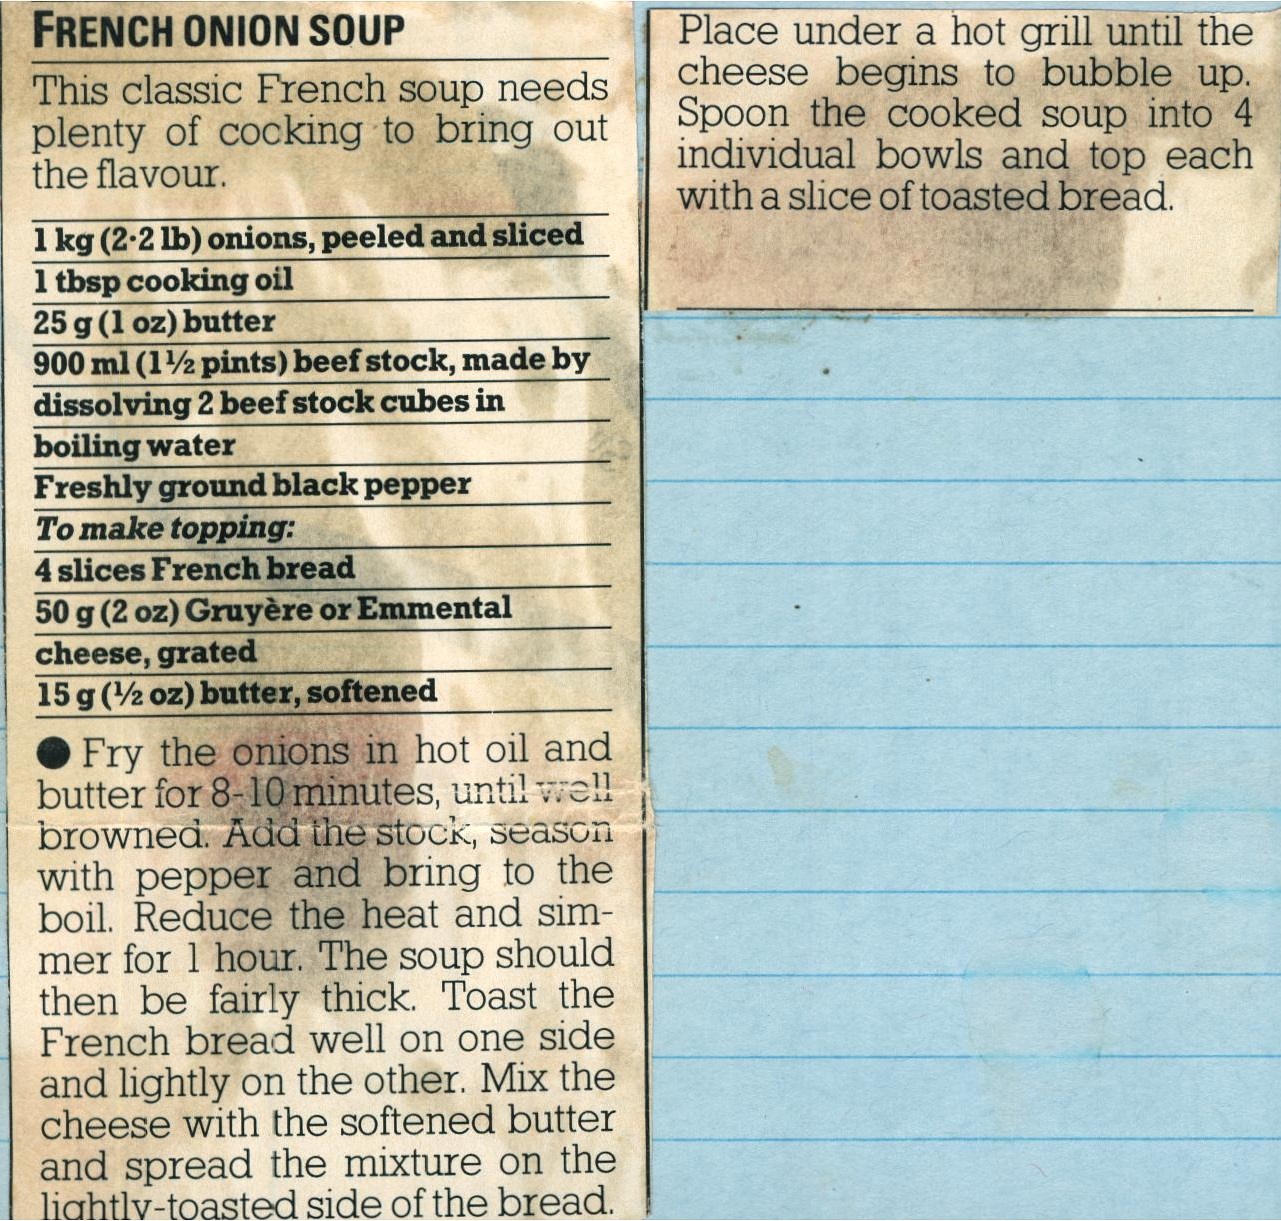 FRENCH ONION SOUP
This classic French soup needs
plenty of cocking to bring out
the flavour.
1 kg (2·2 lb) onions, peeled and sliced
1 tbsp cooking oil
25 g (1 oz) butter
900 ml (1½ pints) beef stock, made by
dissolving 2 beef stock cubes in
boiling water
Freshly ground black pepper
To make topping:
4 slices French bread
50 g (2 oz) Gruyère or Emmental
cheese, grated
15 g (½ oz) butter, softened
● Fry the onions in hot oil and
butter for 8-10 minutes, until well
browned. Add the stock, season
with pepper and bring to the
boil. Reduce the heat and sim-
mer for 1 hour. The soup should
then be fairly thick. Toast the
French bread well on one side
and lightly on the other. Mix the
cheese with the softened butter
and spread the mixture on the
lightly-toasted side of the bread.
Place under a hot grill until the
cheese begins to bubble up.
Spoon the cooked soup into 4
individual bowls and top each
with a slice of toasted bread.